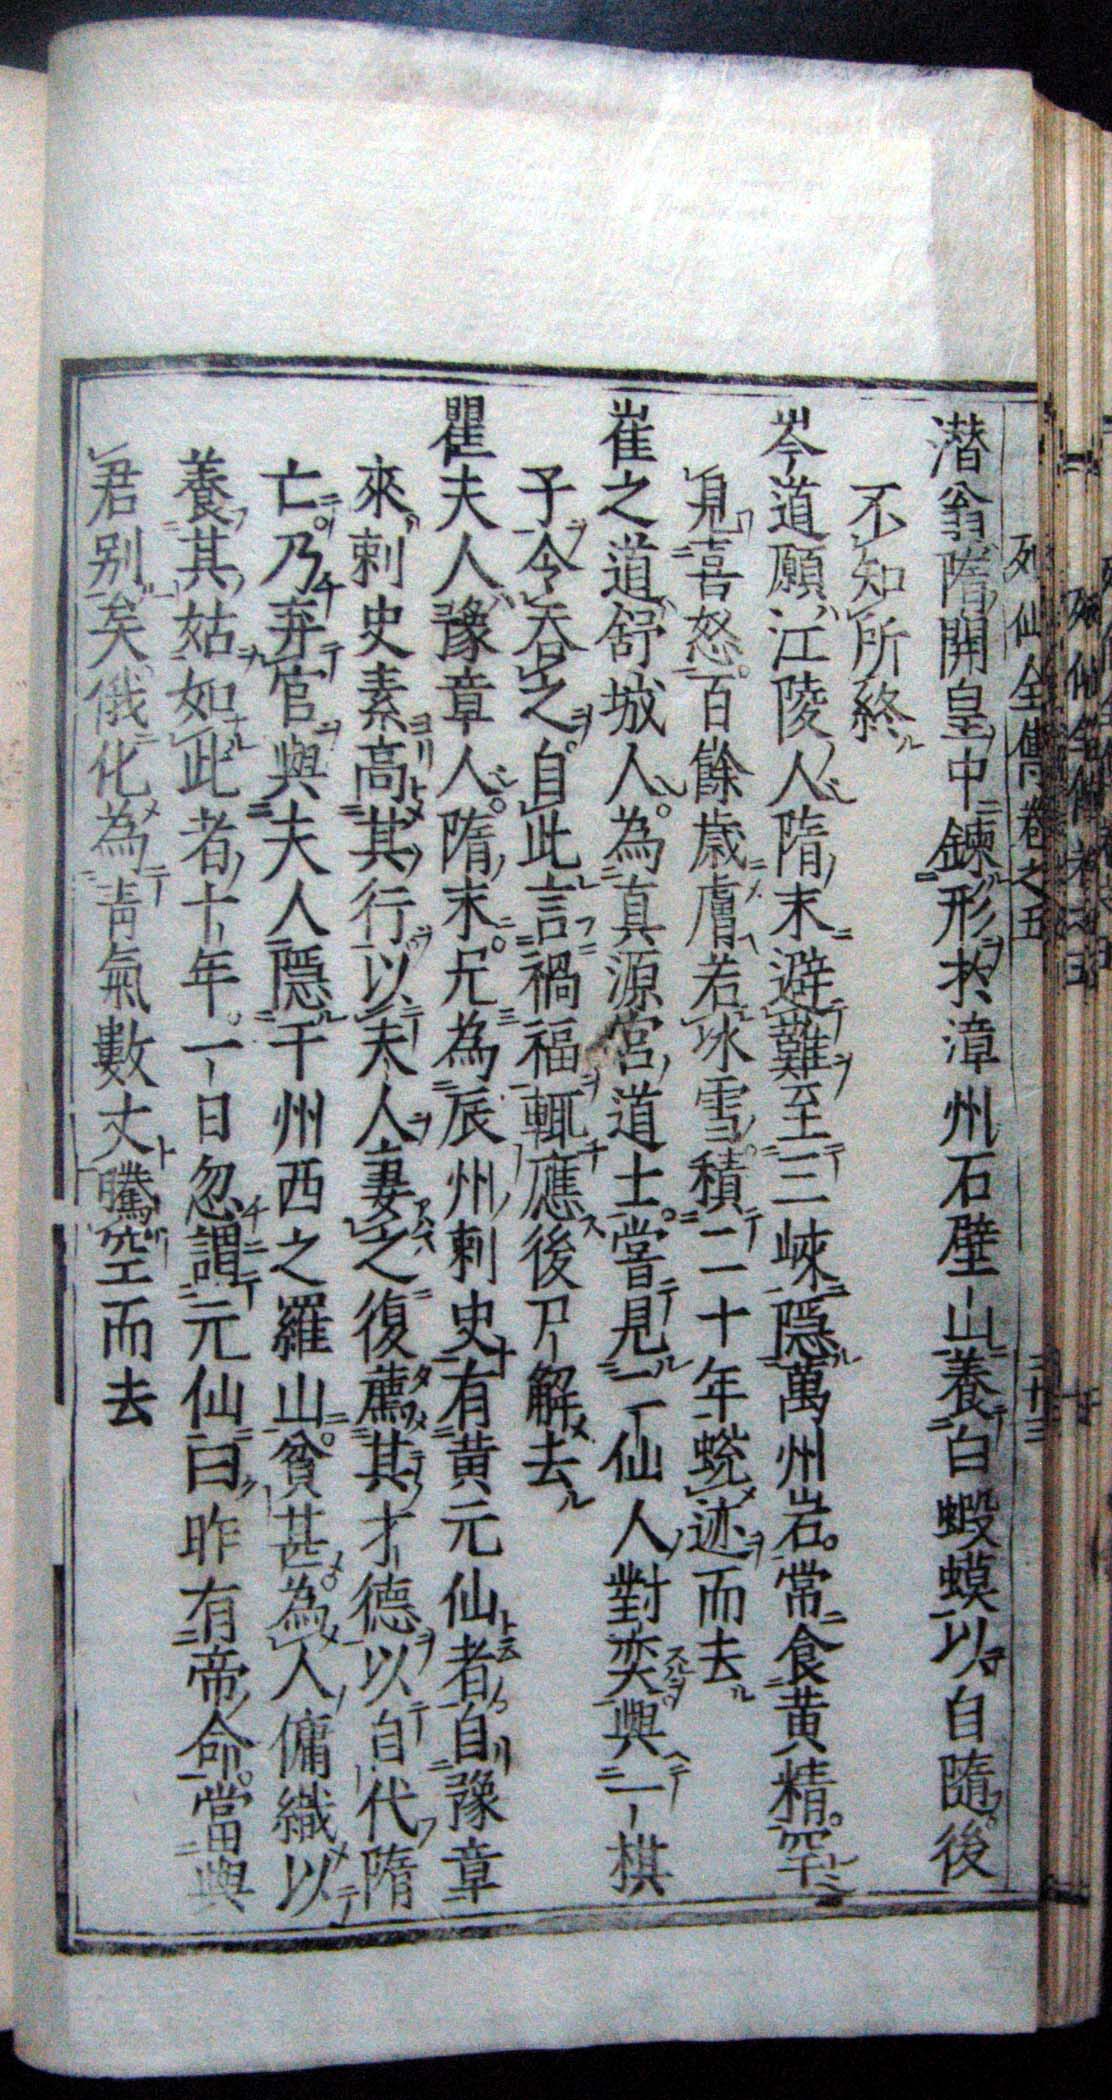 列仙全傳卷之五
潛翁隋開皇中鍊形於漳州石壁山養白蝦蟆以自隨後
不知所終
岑道願江陵人隋末避難至三峽隱萬州岩常食黄精罕
見喜怒百餘歳膚若氷雪積二十年蛻迹而去
崔之道舒城人為真源宮道士嘗見二仙人對奕與一棋
子令吞之自此言禍福輒應後尸解去
瞿夫人豫章人隋末兄為辰州刺史有黄元仙者自豫章
來刺史素高其行以夫人妻之復薦其才德以自代隋
亡乃弃官與夫人隱干州西之羅山貧甚為人傭織以
養其姑如此者十年一日忽謂元仙曰昨有帝命當與
君别矣俄化為青氣數丈騰空而去